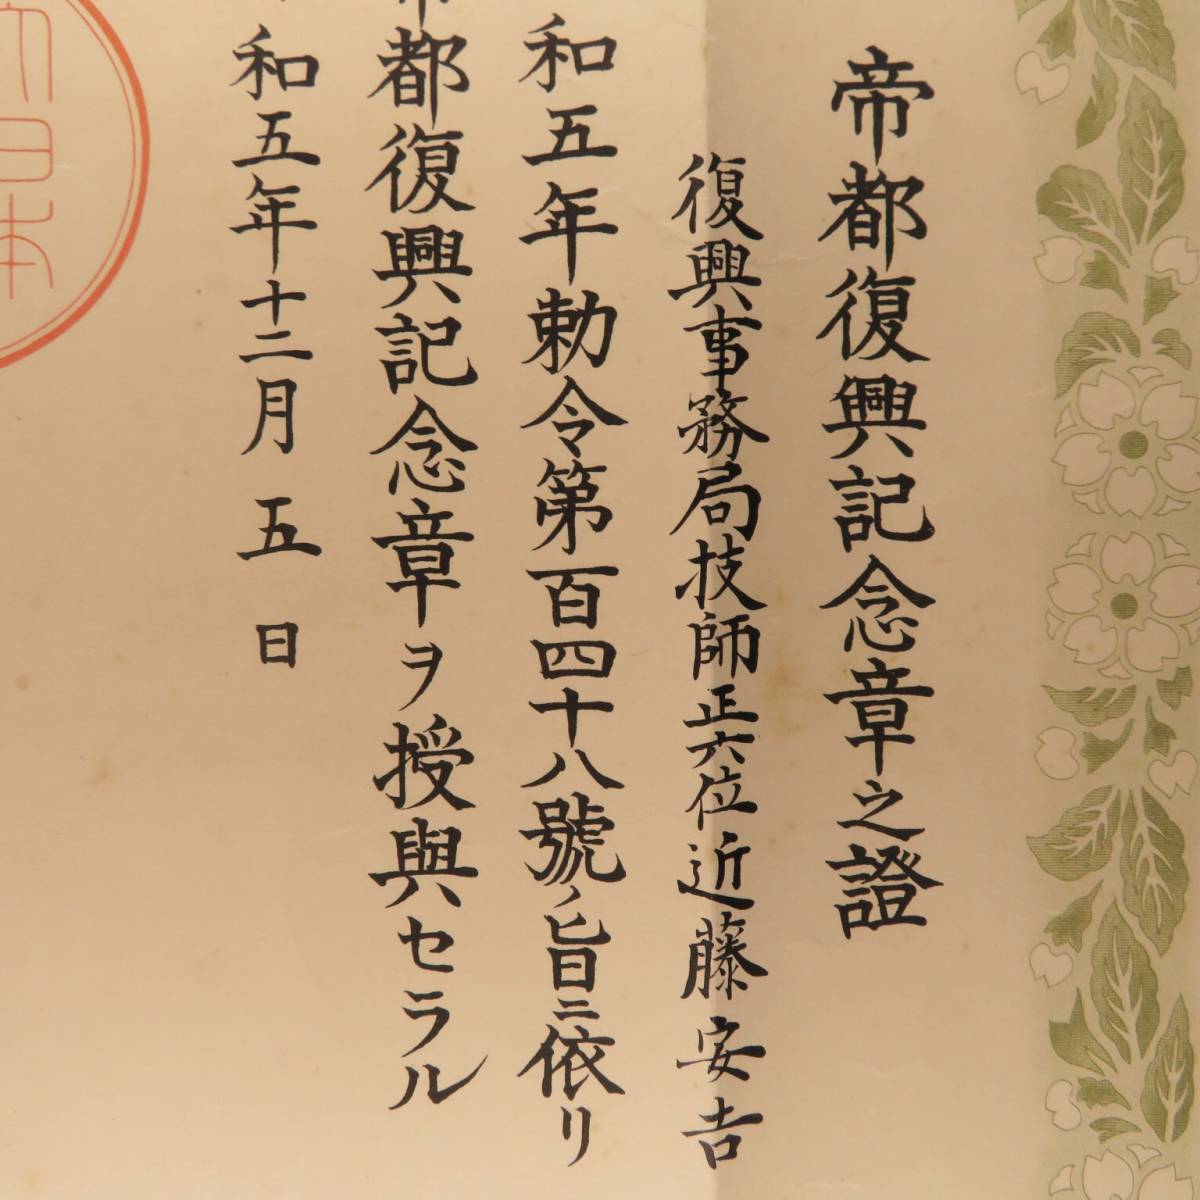 帝都復興記念章之證
復興事務局技師正六位近藤安吉
和五年勅令第百四十八號ノ旨ニ依リ
帝都復興記念章ヲ授與セラル
和五年十二月五日
大日本